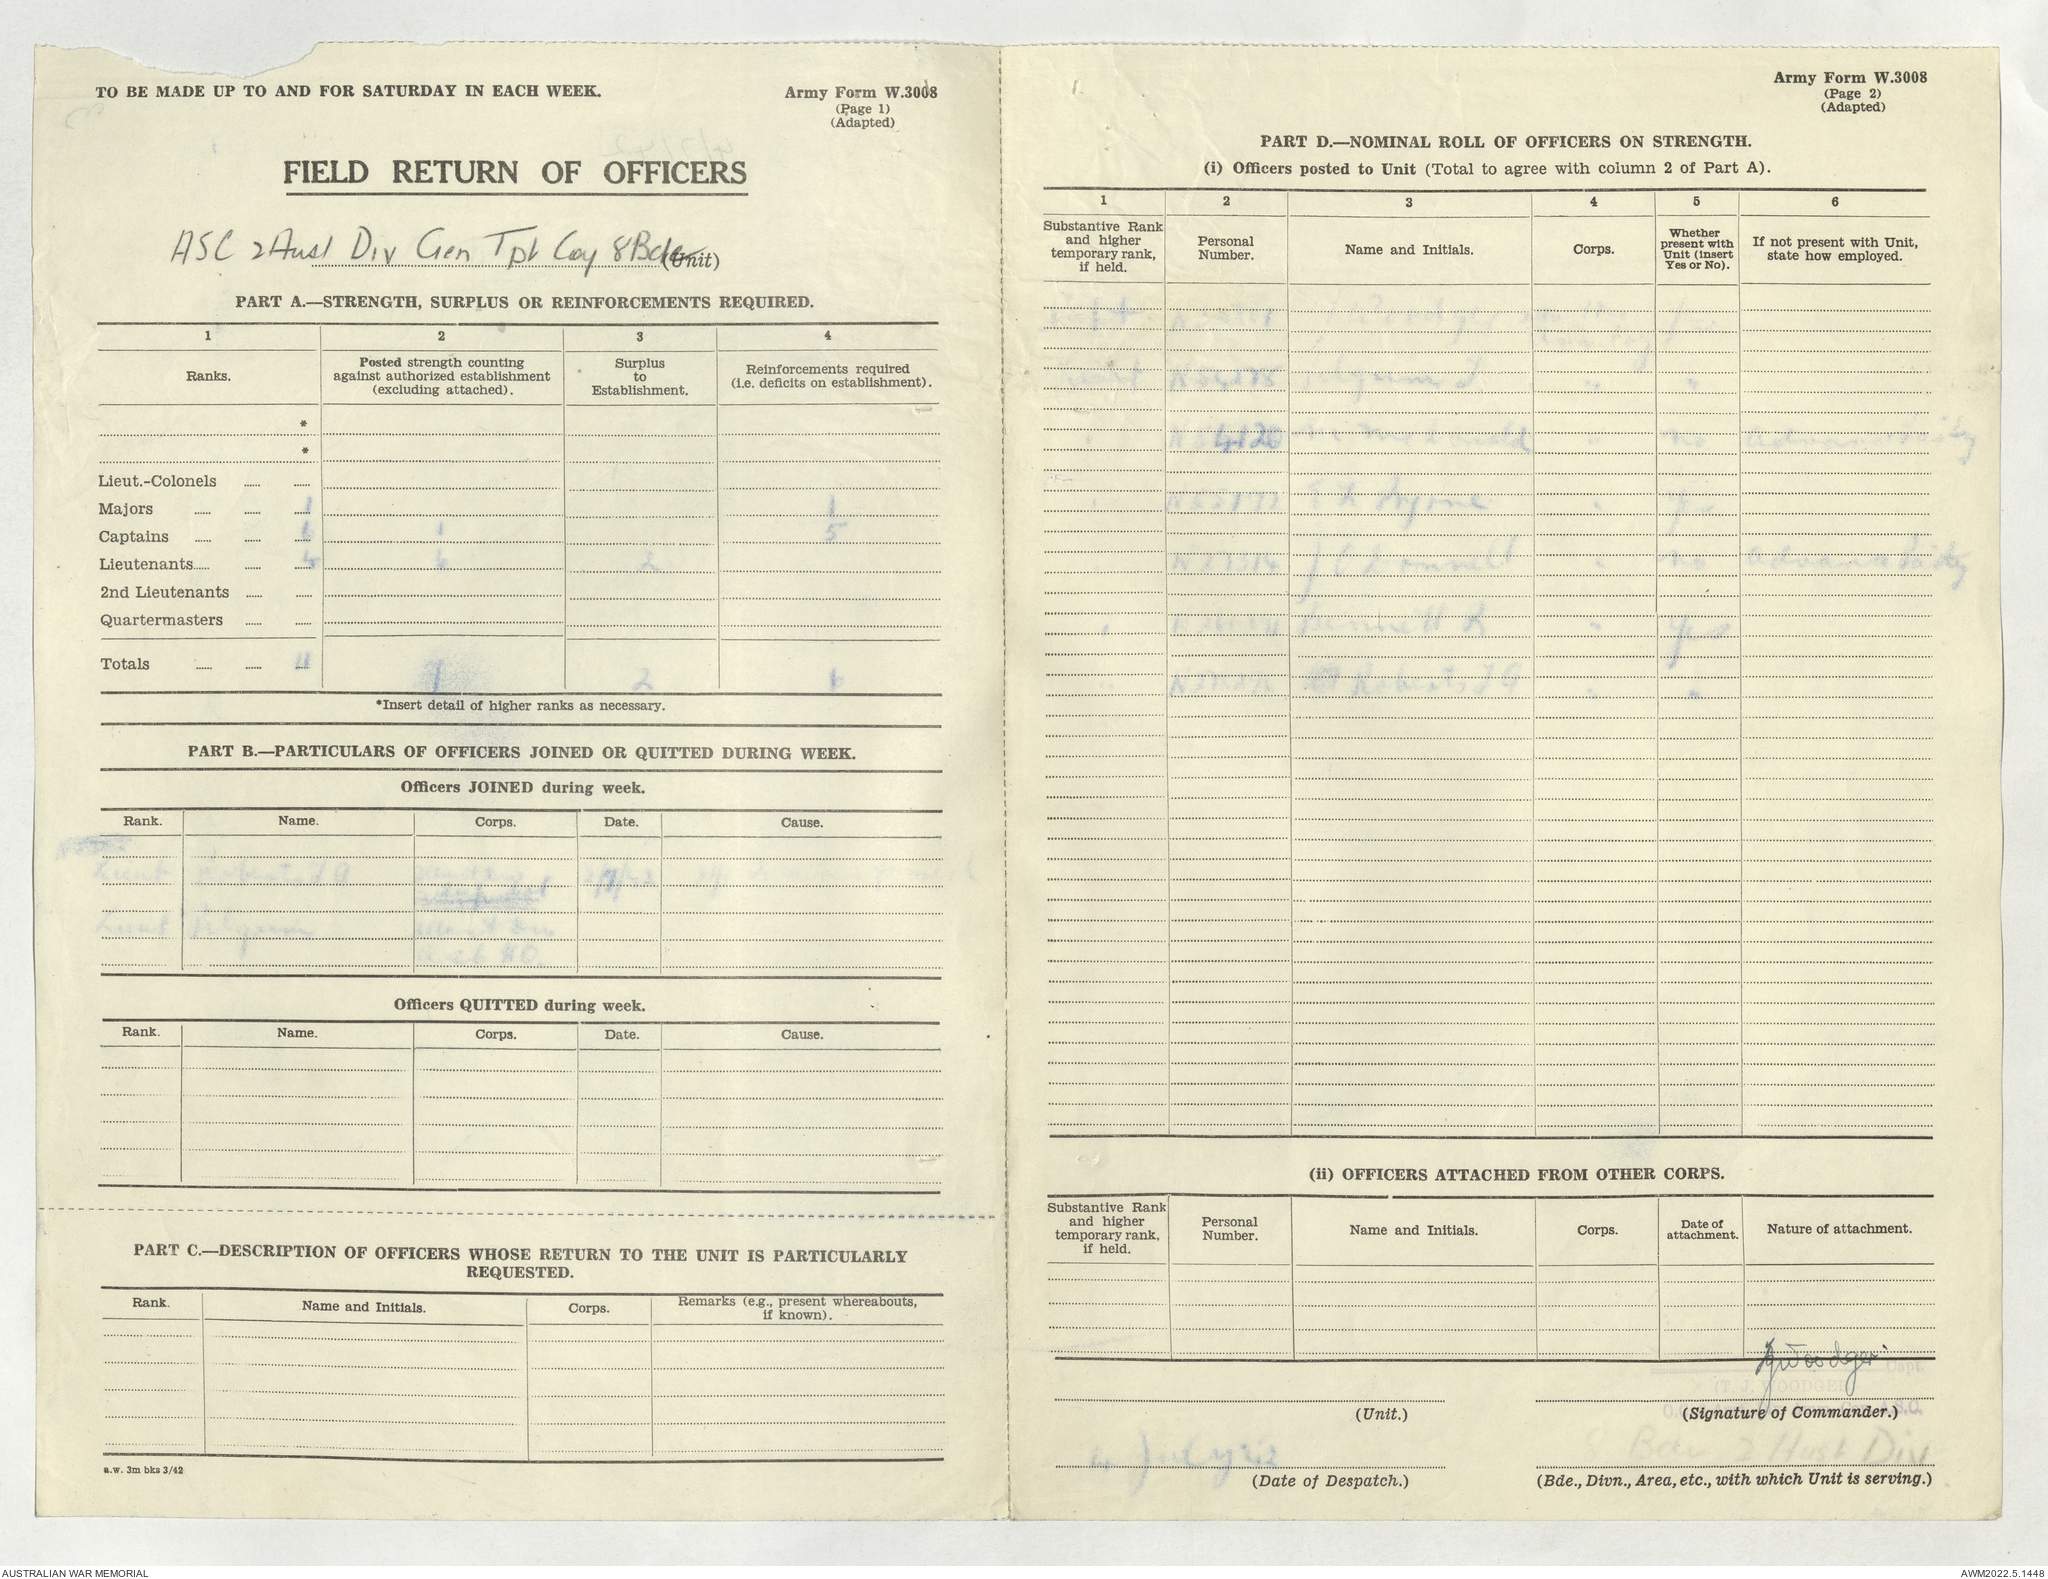 TO BE MADE UP TO AND FOR SATURDAY IN EACH WEEK.
Army Form W.3008
(Page 1)
(Adapted)
FIELD RETURN OF OFFICERS
ASC 2 Aust Div Gen Tpt Coy 8 Bde (Unit)
PART A.—STRENGTH, SURPLUS OR REINFORCEMENTS REQUIRED.
1 2 3 4
Ranks.
Posted strength counting against authorized establishment (excluding attached).
Surplus to Establishment.
Reinforcements required (i.e. deficits on establishment).
*
*
Lieut.-Colonels
Majors 1 1
Captains 6 1 5
Lieutenants 4 6 2
2nd Lieutenants
Quartermasters
Totals 11 2 6
*Insert detail of higher ranks as necessary.
PART B.—PARTICULARS OF OFFICERS JOINED OR QUITTED DURING WEEK.
Officers JOINED during week.
Rank. Name. Corps. Date. Cause.
Lieut Roberts J A
Lieut Pilgrim
Officers QUITTED during week.
Rank. Name. Corps. Date. Cause.
PART C.—DESCRIPTION OF OFFICERS WHOSE RETURN TO THE UNIT IS PARTICULARLY
REQUESTED.
Rank. Name and Initials. Corps. Remarks (e.g., present whereabouts, if known).
a.w. 3m bks 3/42
Army Form W.3008
(Page 2)
(Adapted)
PART D.—NOMINAL ROLL OF OFFICERS ON STRENGTH.
(i) Officers posted to Unit (Total to agree with column 2 of Part A).
1 2 3 4 5 6
Substantive Rank and higher temporary rank, if held.
Personal Number.
Name and Initials.
Corps.
Whether present with Unit (insert Yes or No).
If not present with Unit, state how employed.
Capt. J Woodger Yes
Lieut Pilgrim J " "
" " No Advance Party
" Yes
" No Advance Party
" Bennett R " Yes
" Roberts J A " "
(ii) OFFICERS ATTACHED FROM OTHER CORPS.
Substantive Rank and higher temporary rank, if held.
Personal Number.
Name and Initials.
Corps.
Date of attachment.
Nature of attachment.
Woodger Capt.
(T. J. WOODGER)
(Unit.)
(Signature of Commander.)
4 July 42
8 Bde 2 Aust Div
(Date of Despatch.)
(Bde., Divn., Area, etc., with which Unit is serving.)
AUSTRALIAN WAR MEMORIAL
AWM2022.5.1448